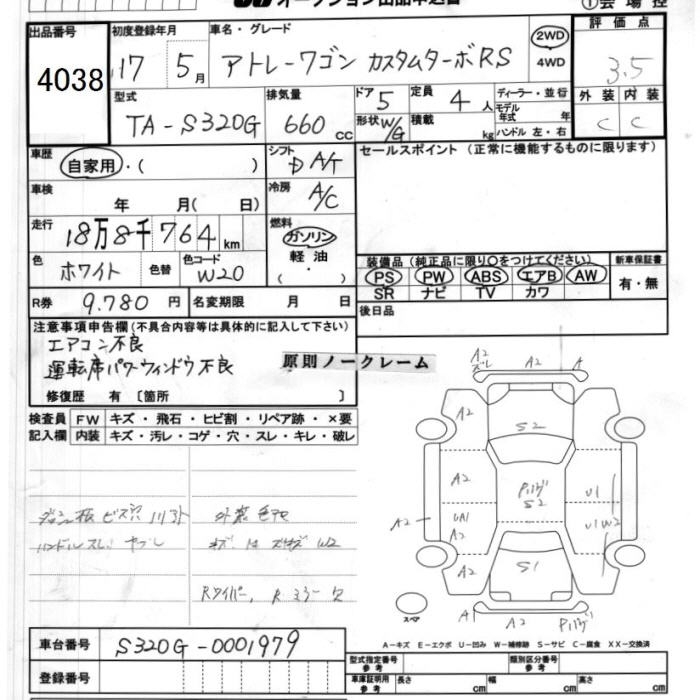 オークション出品申込書
①会場控
出品番号
4038
初度登録年月
17 5月
車名・グレード
アトレーワゴン カスタムターボRS
2WD
4WD
評価点
3.5
型式
TA-S320G
排気量
660 cc
ドア 5
形状 W/G
定員 4 人
積載 kg
ディーラー・並行
モデル年式 年
ハンドル 左・右
外装 内装
C C
車歴
自家用・( )
シフト
A/T
セールスポイント(正常に機能するものに限ります)
車検
年 月( 日)
冷房
A/C
走行
18万8千764km
燃料
ガソリン
軽油
色
ホワイト
色替
色コード
W20
装備品(純正品に限り○をつけてください)
PS PW ABS エアB AW
SR ナビ TV カワ
新車保証書
有・無
R券 9.780 円
名変期限 月 日
後日品
注意事項申告欄(不具合内容等は具体的に記入して下さい)
エアコン不良
運転席パワーウィンドウ不良
原則ノークレーム
修復歴 有 〔箇所 〕
検査員記入欄
FW キズ・飛石・ヒビ割・リペア跡・×要
内装 キズ・汚レ・コゲ・穴・スレ・キレ・破レ
A2 A2 A
A2 A2
S2
A2
S2
U1
A2
A2
U1 W2
A2 A2
S1
スペア
A1 A2
ハンドルスレ
外装色
W2
Rワイパー, Rミラー欠
A-キズ E-エクボ U-凹み W-補修跡 S-サビ C-腐食 XX-交換済
車台番号 S320G-0001979
登録番号
型式指定番号 参考
類別区分番号 参考
車庫証明用 参考 長さ cm 幅 cm 高さ cm